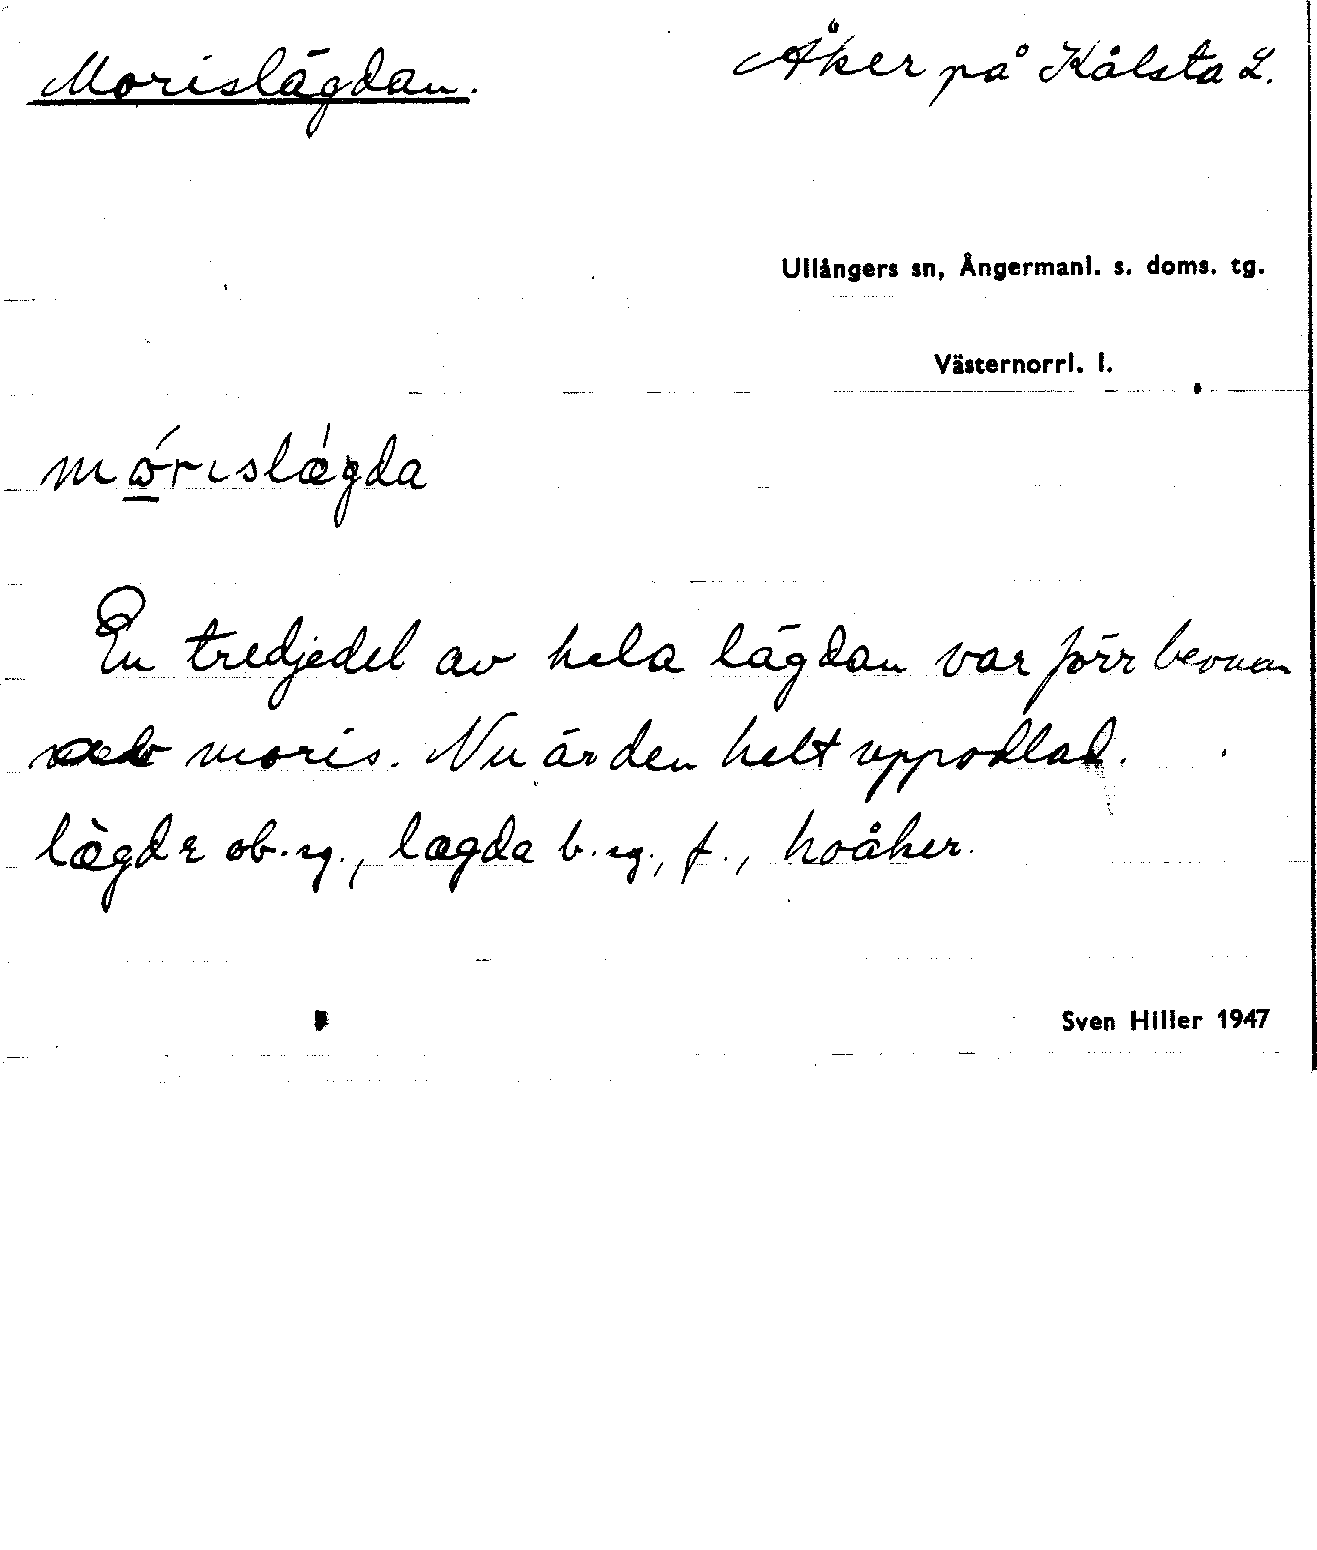 Morislägdan.
Åker på Kålsta 2.
Ullångers sn, Ångermanl. s. doms. tg.
Västernorrl. l.
mórislǽgda
En tredjedel av hela lägdan var förr bevuxen
moris. Nu är den helt uppodlad.
lægde ob. sg., lægda b. sg., f., hoåker.
Sven Hiller 1947